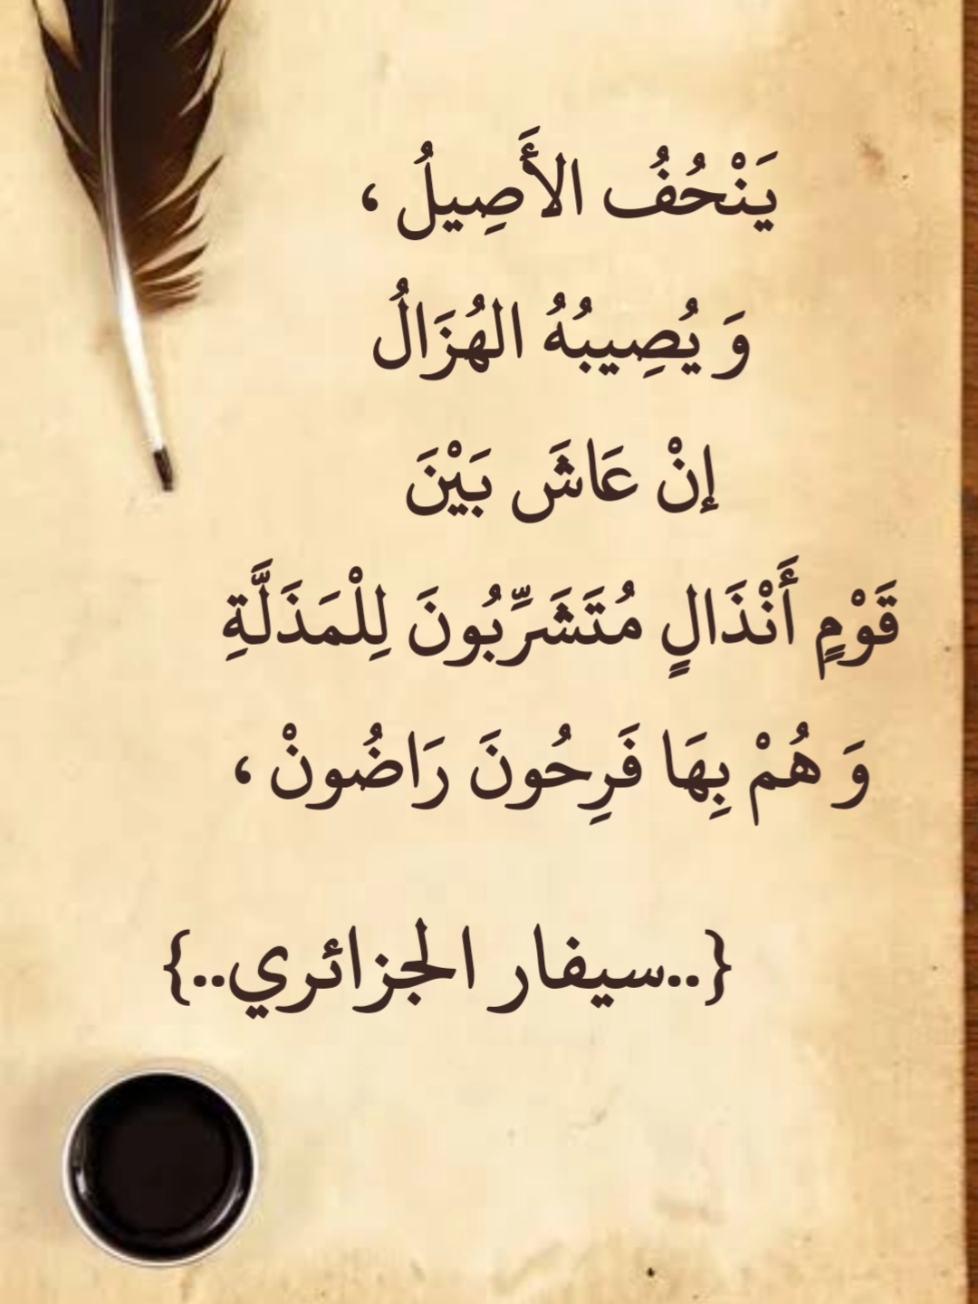 يَنْحُفُ الأَصِيلُ ،
وَ يُصِيبُهُ الهُزَالُ
إنْ عَاشَ بَيْنَ
قَوْمٍ أَنْذَالٍ مُتَشَرِّبُونَ لِلْمَذَلَّةِ
وَ هُمْ بِهَا فَرِحُونَ رَاضُونْ ،
{..سيفار الجزائري..}